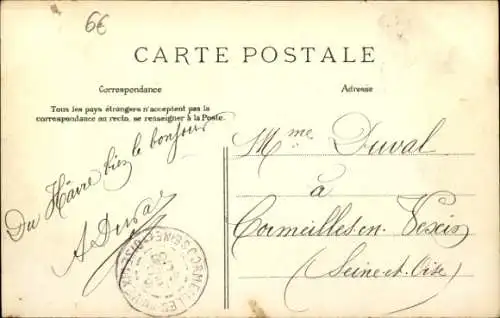 6€
CARTE POSTALE
Correspondance
Tous les pays étrangers n'acceptent pas la
correspondance au recto, se renseigner à la Poste.
Du Hâvre bien le bonjour
A Duval
Adresse
Mme Duval
à
Cormeilles-en-Vexin
(Seine-et-Oise)